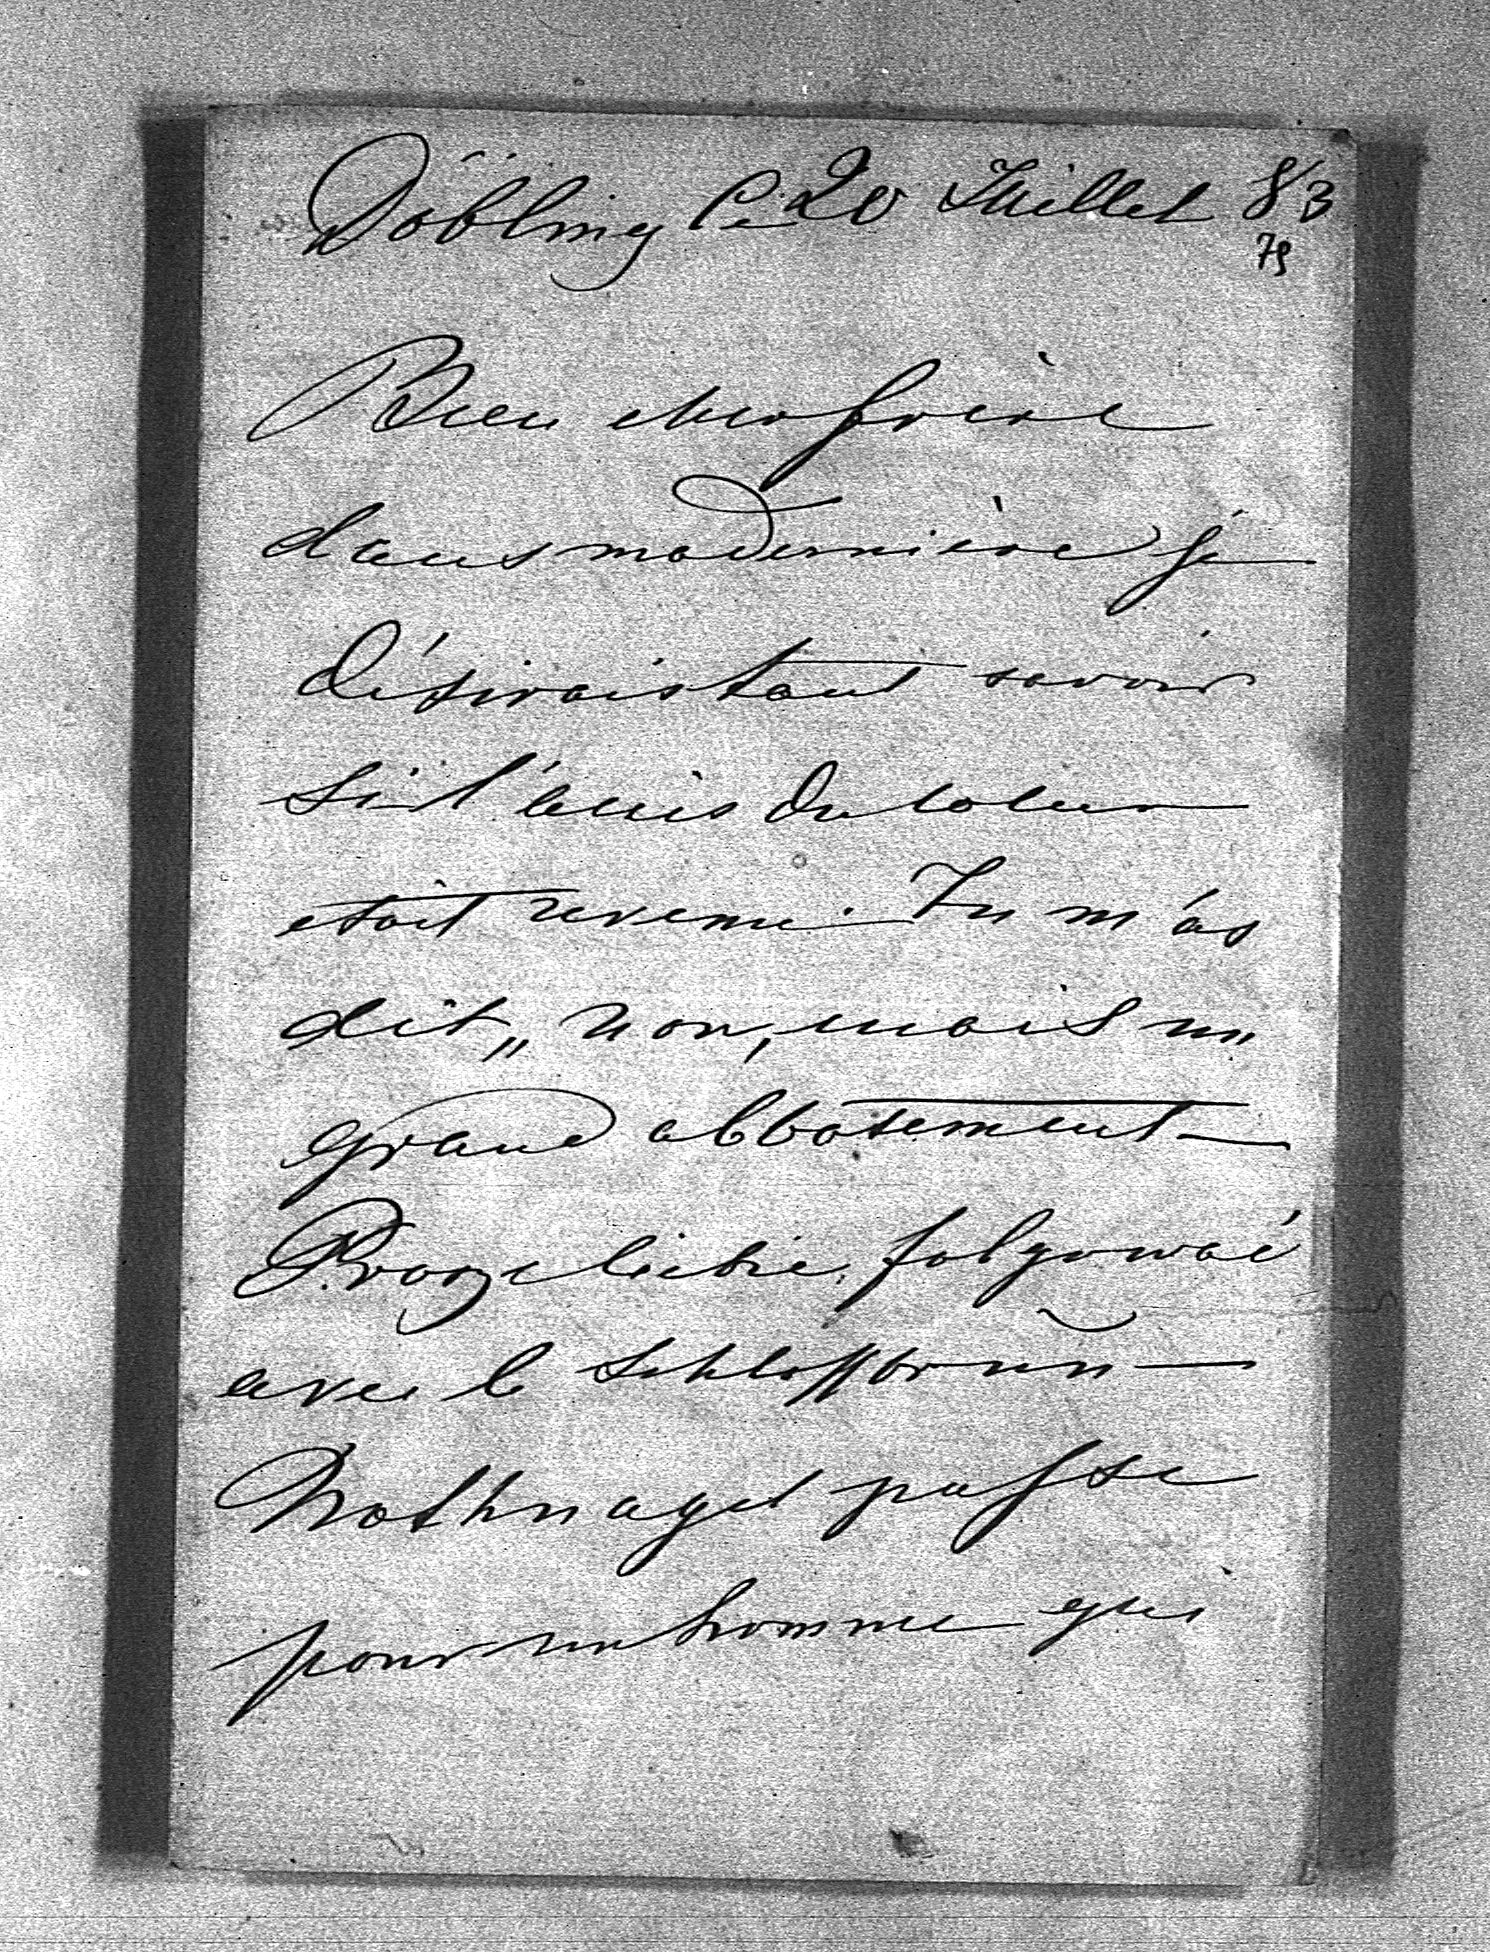 Döbling le 20 Juillet 83
79
Bien cher frère
dans ma dernière je
désirais tant savoir
si l'accès du
etait revenu. Tu m'as
dit „non, mais un
grand abbatement
Proszę Ciebie,
avec le Schlossbrunn
Nothnagel passe
pour un homme qui